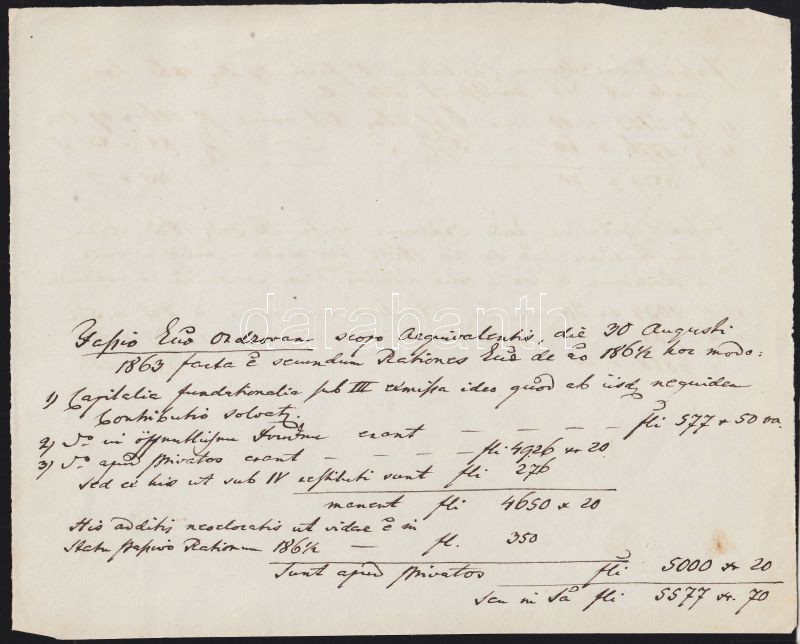 Fassio Eccō Ordzovan scopo Aequivalentis, die 30 Augusti
1863 facta ē secundum Rationes Eccē de ao 186½ hoc modo:
1) Capitalia fundationalia sub III emissa ideo quod ab iisd nequidem
Contributio solvat.
fli 577 x 50 va.
2) Do in öffentlichen erant — — — — fli 4926 xr 20
3) Do apud Privatos erant — — — —
Sed ex his ut sub IV restituti sunt fli 276
manent fli 4650 x 20
His additis neoelocatis ut videre ē in
Statu passivo Rationum 186½ — fl. 350
Sunt apud Privatos fli 5000 xr 20
seu in Sā fli 5577 xr. 70
darabanth